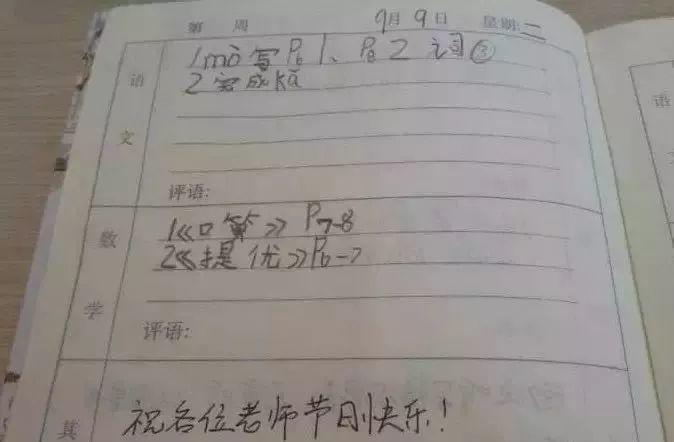 第 周 9月9日 星期:二
语文
1 mò写P6 1、P8 2 词③
2 完成kǎ
评语:
数学
1《口算》P7-8
2《提优》P6-7
评语:
其
祝各位老师节日快乐!
语